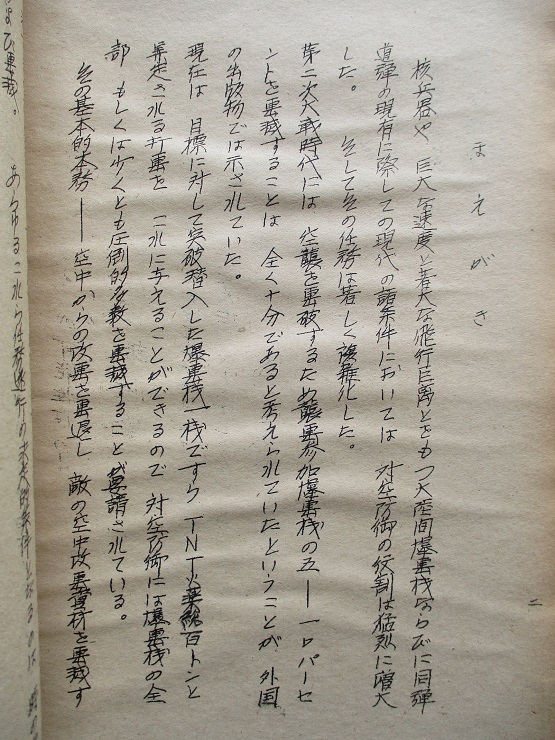 まえがき
核兵器や 巨大な速度と著大な飛行距離とをもつ大陸間爆撃機ならびに同弾
道弾の現有に際しての現代の諸条件においては 対空防御の役割は猛烈に増大
した。 そしてその任務は著しく複雑化した。
第二次大戦時代には 空襲を撃破するため襲撃参加爆撃機の五――一〇パーセ
ントを撃滅することは 全く十分であると考えられていたということが 外国
の出版物では示されていた。
現在は 目標に対して突破潜入した爆撃機一機ですら TNT火薬総百トンと
算定される打撃を これに与えることができるので 対空防御には爆撃機の全
部 もしくは少くとも圧倒的多数を撃滅することが要請されている。
その基本的本務――空中からの攻撃を撃退し 敵の空中攻撃資材を撃滅す
あらゆるこれら任務遂行の
二